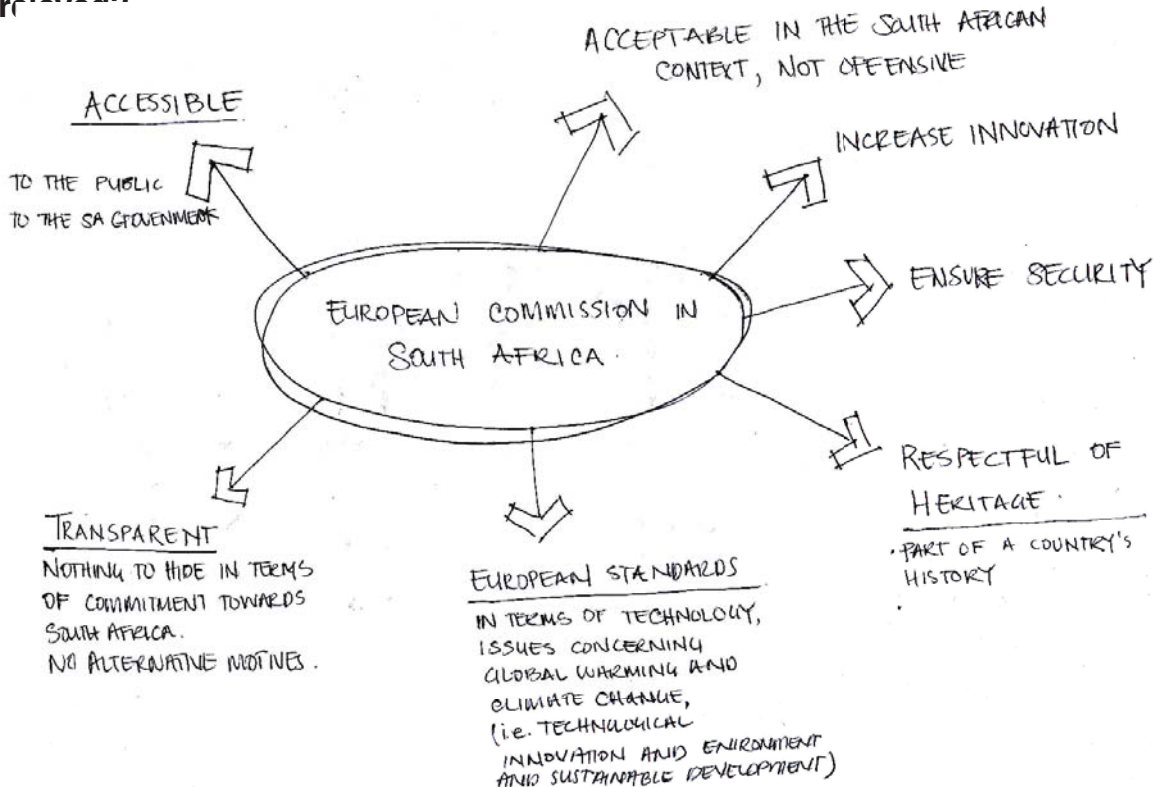 ACCEPTABLE IN THE SOUTH AFRICAN
CONTEXT, NOT OFFENSIVE
ACCESSIBLE
TO THE PUBLIC
TO THE SA GOVENMENT
INCREASE INNOVATION
ENSURE SECURITY
EUROPEAN COMMISSION IN
SOUTH AFRICA.
RESPECTFUL OF
HERITAGE.
• PART OF A COUNTRY'S
HISTORY
TRANSPARENT
NOTHING TO HIDE IN TERMS
OF COMMITMENT TOWARDS
SOUTH AFRICA.
NO ALTERNATIVE MOTIVES.
EUROPEAN STANDARDS
IN TERMS OF TECHNOLOGY,
ISSUES CONCERNING
GLOBAL WARMING AND
CLIMATE CHANGE,
(i.e. TECHNOLOGICAL
INNOVATION AND ENIRONMENT
AND SUSTAINABLE DEVELOPMENT)